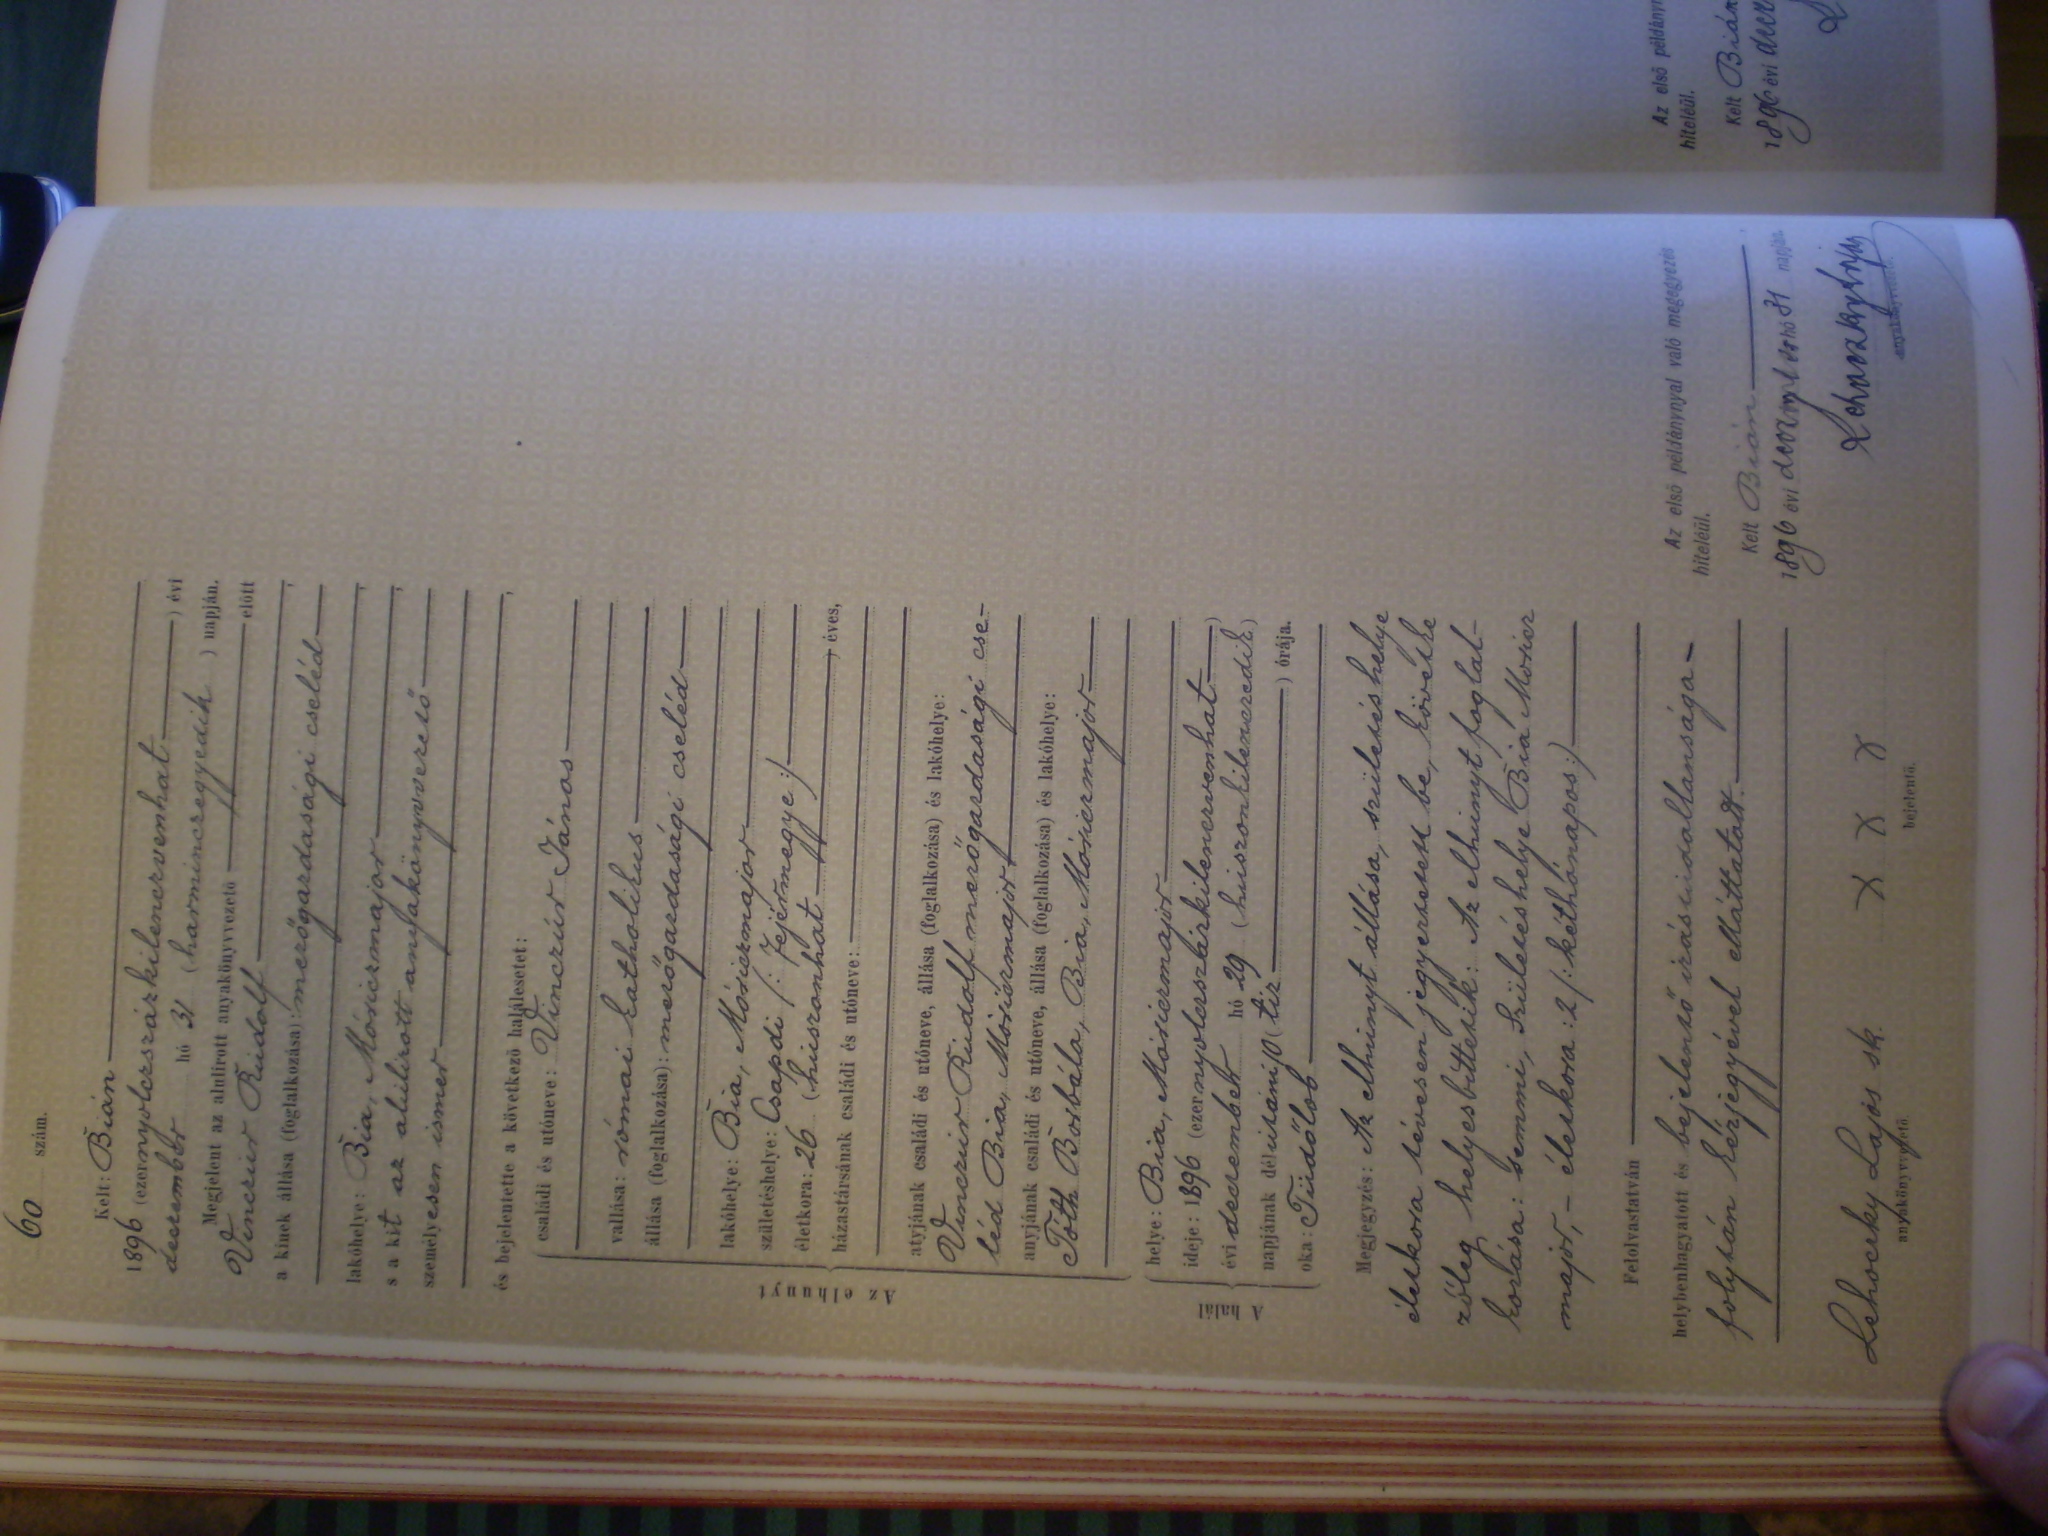 60 szám.
Kelt: Bián
1896 (ezernyolczszázkilenczvenhat ) évi
deczember hó 31 (harminczegyedik ) napján.
Megjelent az alulirott anyakönyvvezető előtt
Vinczúr Rudolf
a kinek állása (foglalkozása): mezőgazdasági cseléd
lakóhelye: Bia, Móriczmajor ,
s a kit az alulírott anyakönyvvezető ,
személyesen ismer
és bejelentette a következő halálesetet: ,
Az elhunyt
családi és utóneve: Vinczúr János
vallása: római katholikus
állása (foglalkozása): mezőgazdasági cseléd
lakóhelye: Bia, Móriczmajor
születéshelye: Csapdi /: Fejérmegye :/
életkora: 26 (húszonhat ) éves,
házastársának családi és utóneve:
atyjának családi és utóneve, állása (foglalkozása) és lakóhelye:
Vinczúr Rudolf mezőgazdasági cse-
léd Bia, Móriczmajor
anyjának családi és utóneve, állása (foglalkozása) és lakóhelye:
Tóth Borbála, Bia, Móriczmajor
A halál
helye: Bia, Móriczmajor
ideje: 1896 (ezernyolczszázkilenczvenhat )
évi deczember hó 29 (húszonkilenczedik )
napjának délutáni 10 (tíz ) órája.
oka: Tüdőlob
Megjegyzés: Az elhunyt állása, születéshelye
életkora tévesen jegyeztetett be, követke
zőleg helyesbíttetik: Az elhunyt foglal-
kozása: semmi, Születéshelye Bia Móricz
major, – életkora: 2 /: kéthónapos :/
Felolvastatván
helybenhagyatott és bejelentő írástudatlansága
folytán kézjegyével elláttatott.
Lehoczky Lajos sk. X X X
anyakönyvvezető bejelentő.
Az első példánynyal való megegyezés
hiteléül.
Kelt Bián ,
1896 évi deczember hó 31 napján.
Lehoczky Lajos
anyakönyvvezető.
Az első példányn
hiteléül.
Kelt Bián
1896 évi decz